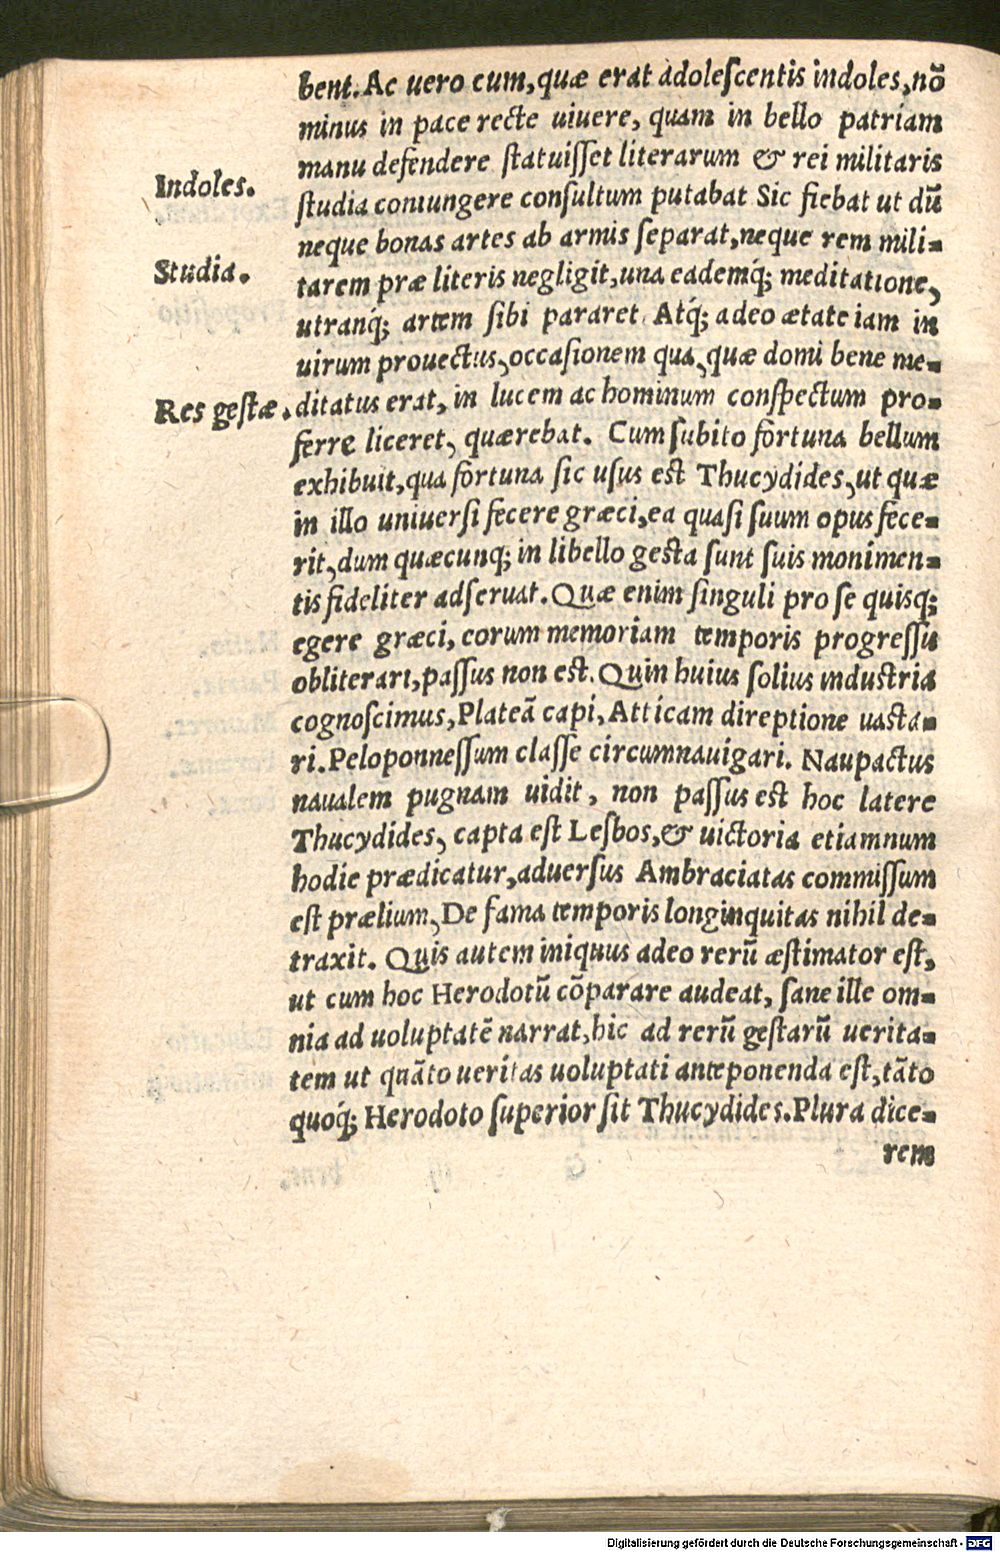 bent. Ac uero cum, quæ erat adolescentis indoles, nō
minus in pace recte uiuere, quam in bello patriam
manu defendere statuisset literarum & rei militaris
Indoles.
studia coniungere consultum putabat Sic fiebat ut dū
neque bonas artes ab armis separat, neque rem mili-
Studia.
tarem præ literis negligit, una eademq́; meditatione,
utranq́; artem sibi pararet Atq́; adeo ætate iam in
uirum prouectus, occasionem qua, quæ domi bene me-
Res gestæ.
ditatus erat, in lucem ac hominum conspectum pro-
ferre liceret, quærebat. Cum subito fortuna bellum
exhibuit, qua fortuna sic usus est Thucydides, ut quæ
in illo uniuersi fecere græci, ea quasi suum opus fece-
rit, dum quæcunq; in libello gesta sunt suis monimen-
tis fideliter adseruat. Quæ enim singuli pro se quisq;
egere græci, eorum memoriam temporis progressu
obliterari, passus non est. Quin huius solius industria
cognoscimus, Plateā capi, Atticam direptione uasta-
ri. Peloponnessum classe circumnauigari. Naupactus
naualem pugnam uidit, non passus est hoc latere
Thucydides, capta est Lesbos, & uictoria etiamnum
hodie prædicatur, aduersus Ambraciatas commissum
est prælium, De fama temporis longinquitas nihil de-
traxit. Quis autem iniquus adeo rerū æstimator est,
ut cum hoc Herodotū cōparare audeat, sane ille om-
nia ad uoluptatē narrat, hic ad rerū gestarū uerita-
tem ut quāto ueritas uoluptati anteponenda est, tāto
quoq́; Herodoto superior sit Thucydides. Plura dice-
rem
Digitalisierung gefördert durch die Deutsche Forschungsgemeinschaft - DFG